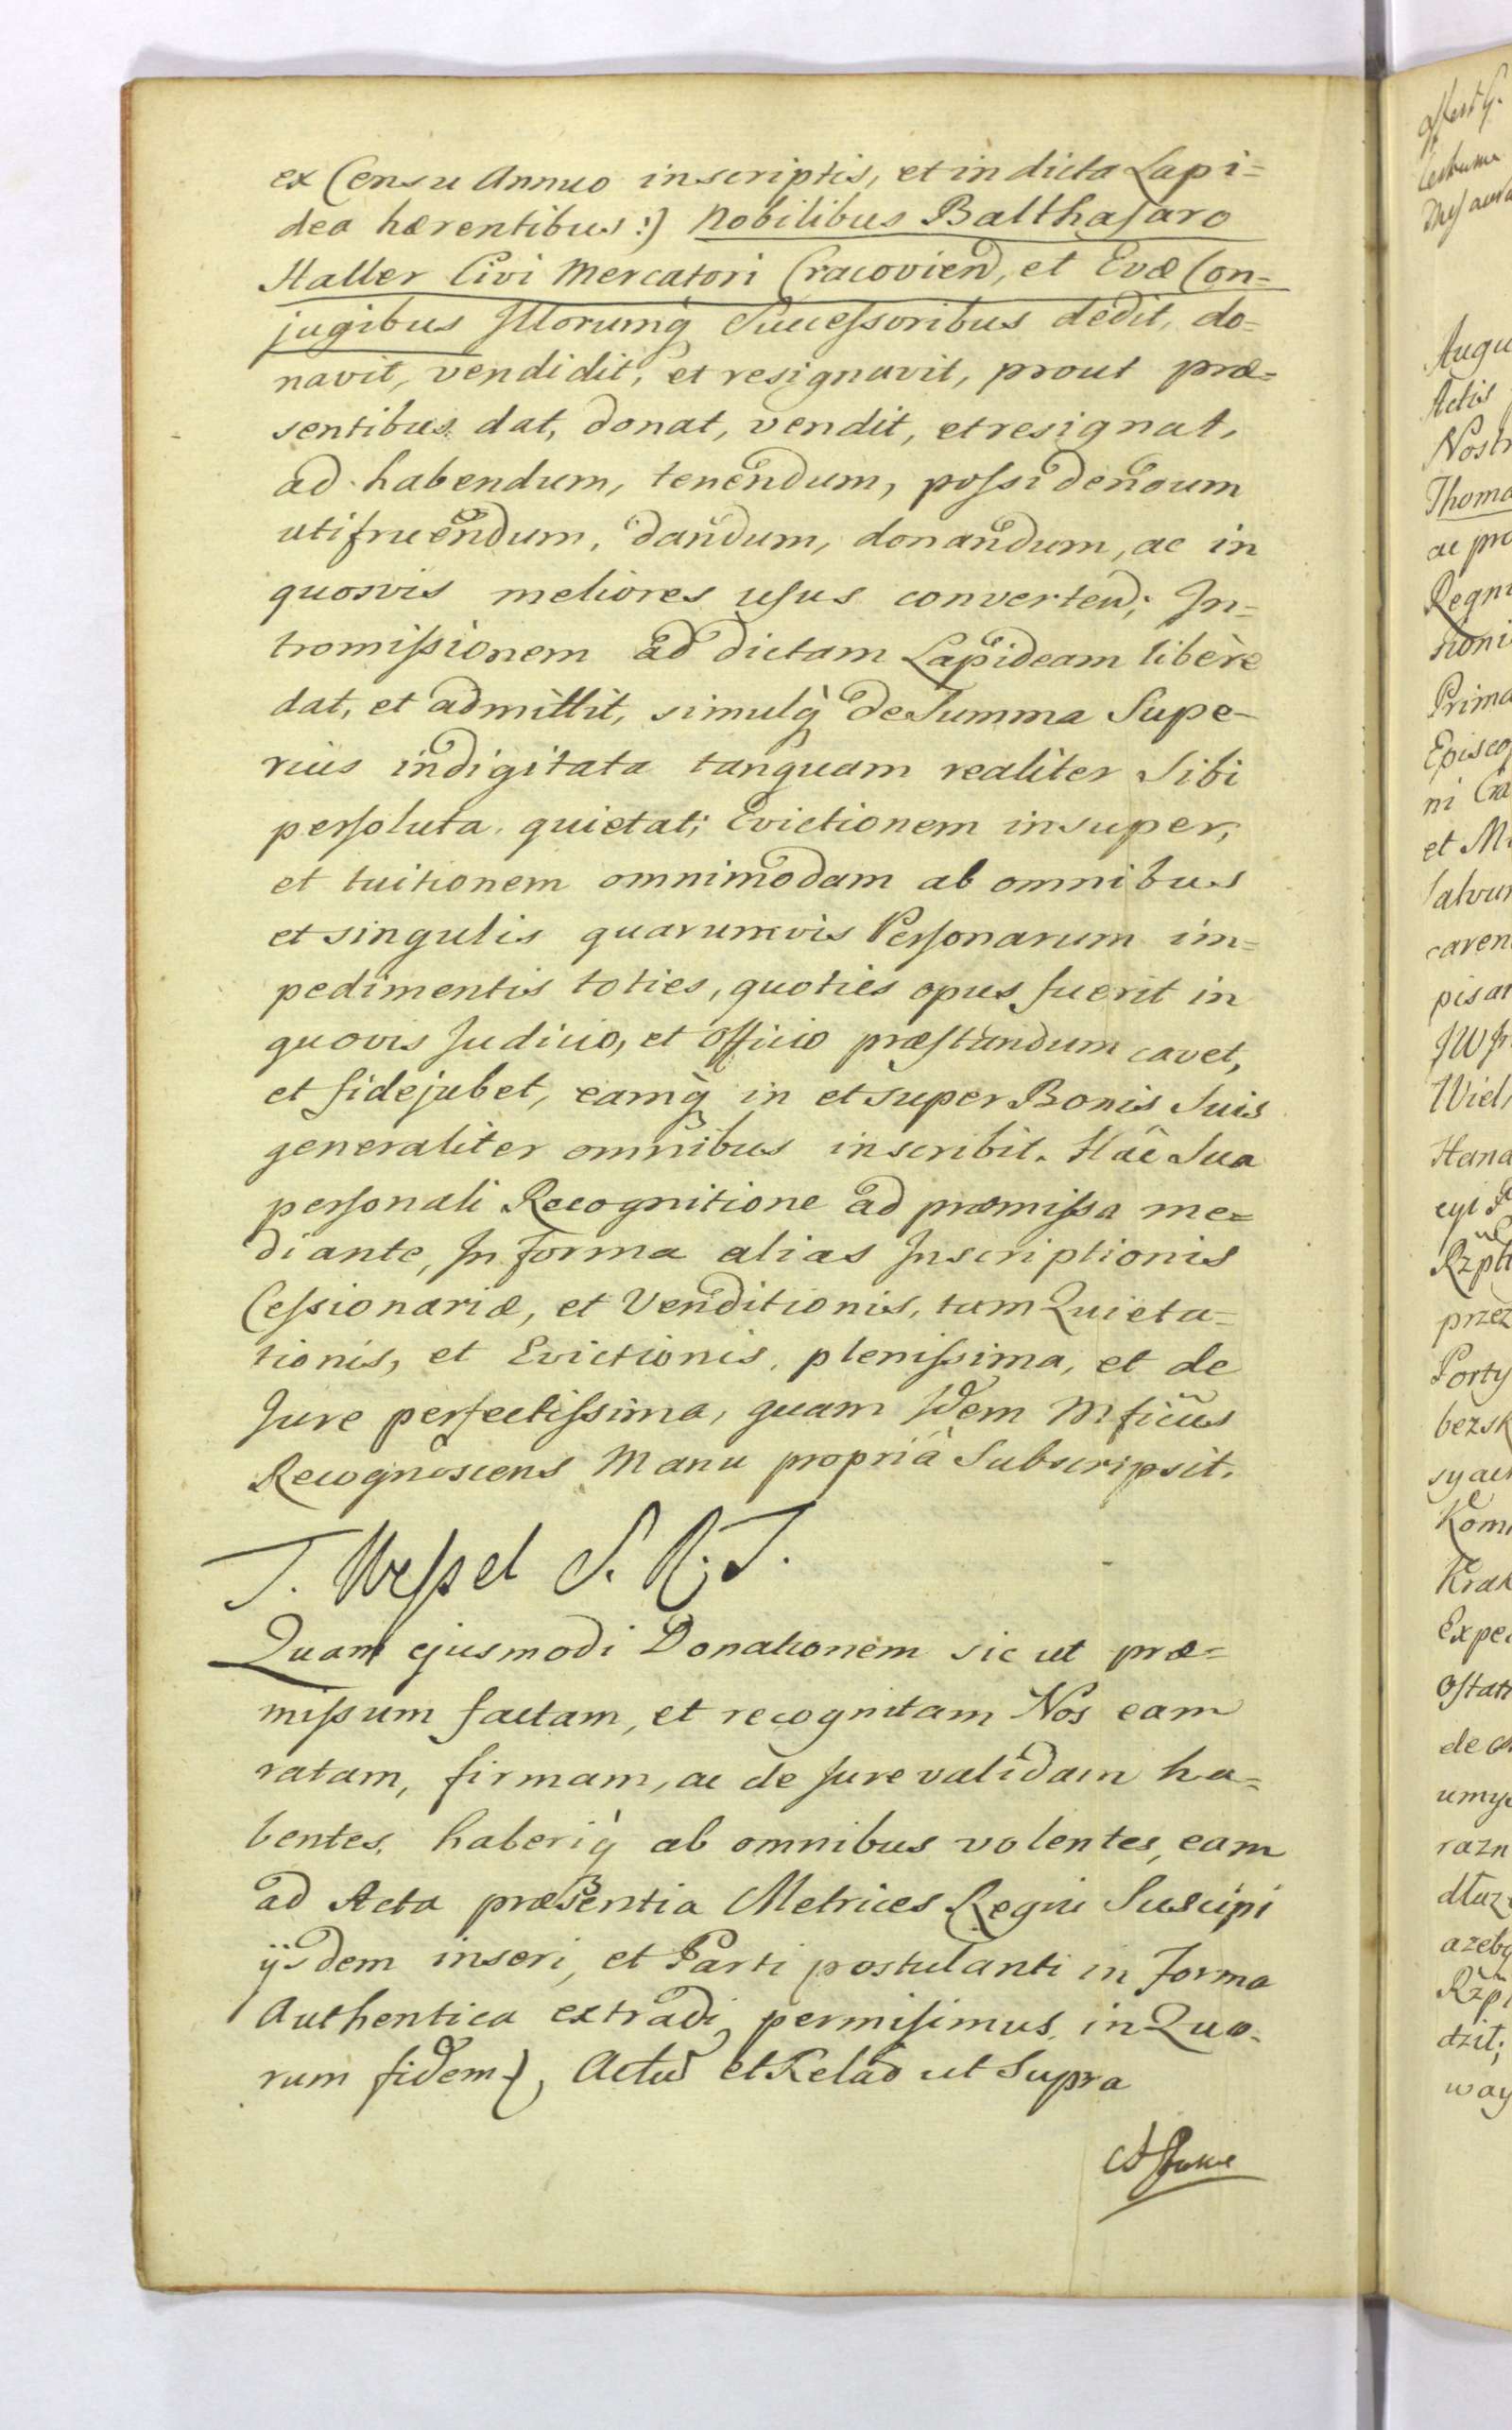 ex Censu Annuo inscriptis, et in dicta Lapi=
dea hærentibus :) Nobilibus Balthasaro
Haller Civi Mercatori Cracovien, et Evæ Con=
jugibus Illorumq Successoribus dedit, do=
navit, vendidit, et resignavit, prout præ=
sentibus dat, donat, vendit, et resignat,
ad habendum, tenendum, possidendum
utifruendum, dandum, donandum, ac in
quosvis meliores usus convertend; In=
tromissionem ad dictam Lapideam liberè
dat, et admittit, simulq de Summa Supe-
rius indigitata tanquam realiter Sibi
persoluta quietat; Evictionem insuper,
et tuitionem omnimodam ab omnibus
et singulis quarumvis Personarum im=
pedimentis toties, quoties opus fuerit in
quovis Judicio, et Officio præstandum cavet,
et fidejubet, eamq in et super Bonis Suis
generaliter omnibus inscribit. Hâc Sua
personali Recognitione ad præmissa me=
diante, In forma alias Inscriptionis
Cessionariæ, et Venditionis, tam Quieta=
tionis, et Evictionis, plenissima, et de
Jure perfectissima, quam Idem Mficus
Recognoscens Manu propriâ Subscripsit.
T. Wessel S. R. T.
Quam ejusmodi Donationem sic ut præ=
missum factam, et recognitam Nos eam
ratam, firmam, ac de Jure validam ha=
bentes, haberiq ab omnibus volentes, eam
ad Acta præsentia Metrices Regni Suscipi
ijsdem inseri, et Parti postulanti in Forma
Authentica extradi permisimus, in Quo-
rum fidem, Actum et Relatio ut Supra
Augu
Actis
Nostr
Thoma
ac pro
Regni
sioni
Prima
Episco
ni Cra
et M
salvu
caven
pisar
Wiel
Rzplt
przez
Porty
bezsk
Kom
Krak
Expe
ostat
umys
razn
dłuz
azeby
Rzpl
dził;
way